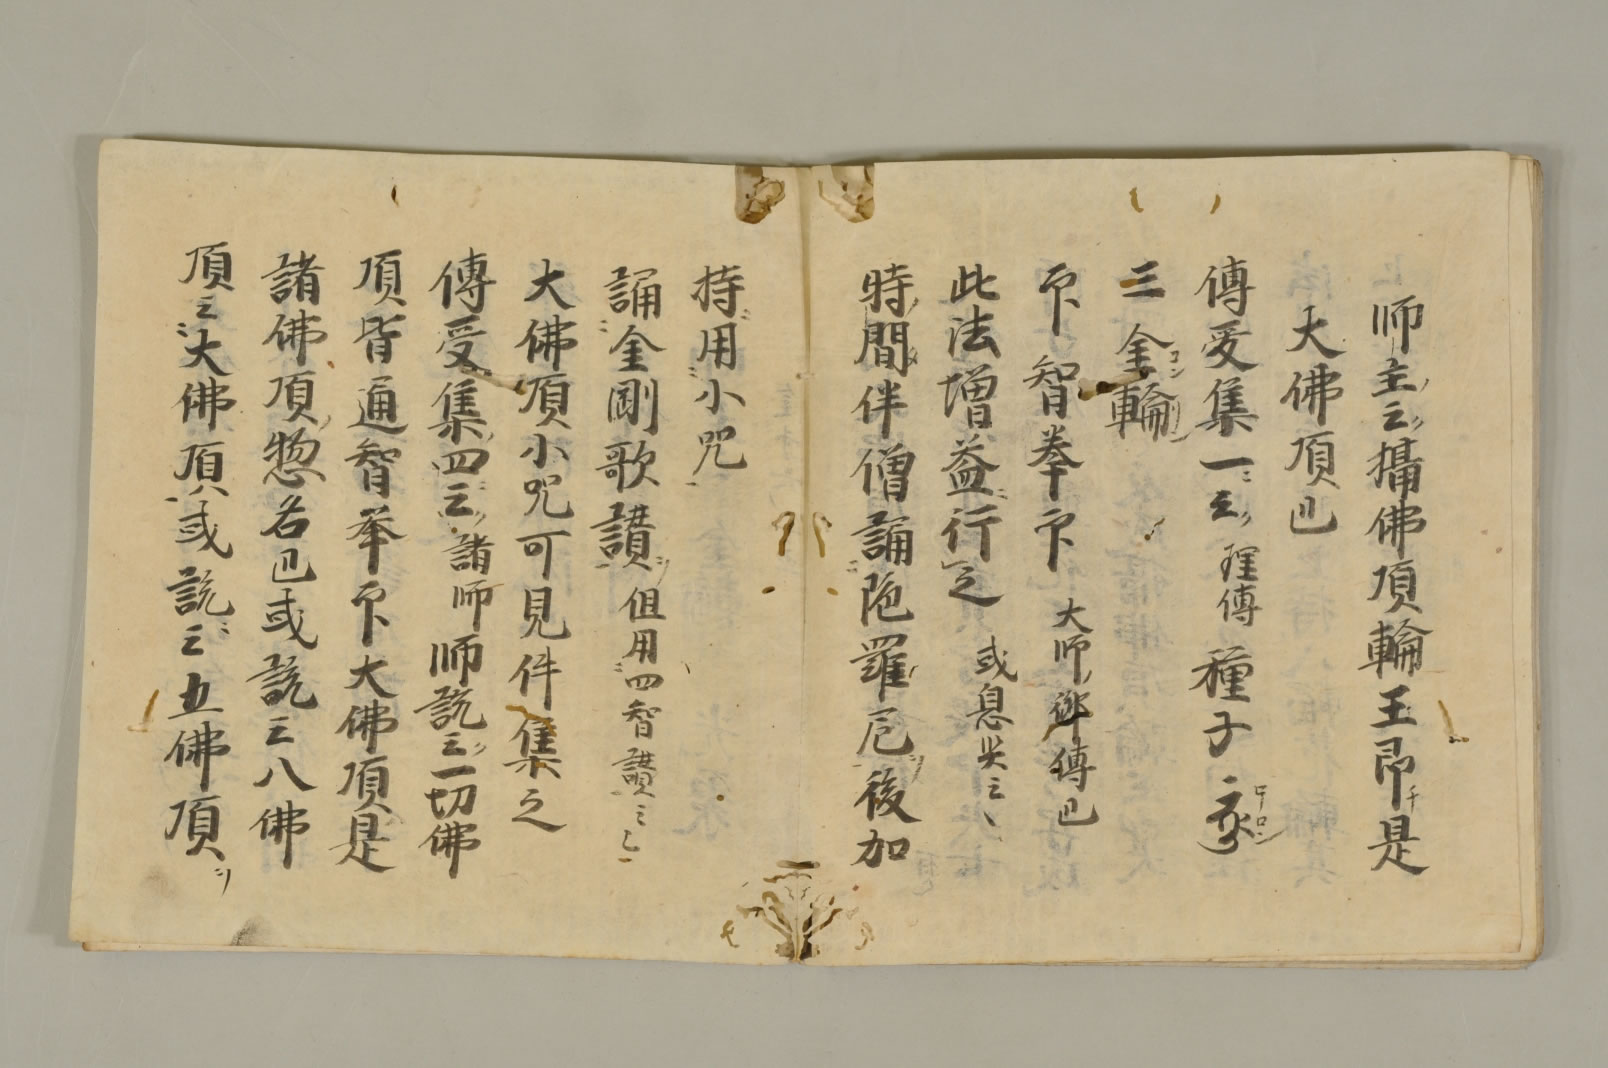 師主云攝佛頂輪王即是
大佛頂也
傳受集一云 理傳 種子
三 金輪
印 智拳印 大師御傳也
此法増益行之 或息災云々
時間伴僧誦陀羅尼後加
持用小咒
誦金剛歌讃 但用四智讃云々
大佛頂小咒可見件集之
傳受集四云 諸師 師説云一切佛
頂皆通智拳印大佛頂是
諸佛頂惣名也或説云八佛
頂云大佛頂或説云五佛頂